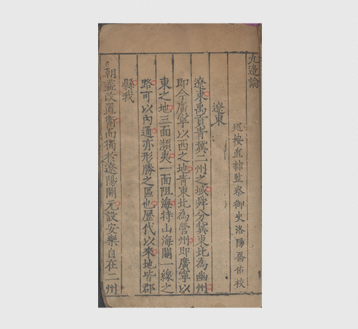 九邊論
巡按直隸監察御史洛陽喬佑校
遼東
遼東禹貢青冀二州之域舜分冀東北為幽州
即今廣寧以西之地青東北為營州即廣寧以
東之地三面瀕夷一面阻海特山海關一線之
路可以內通亦形勝之區也歷代以來地皆郡
縣我
朝盡改置衛而獨於遼陽開元設安樂自在二州